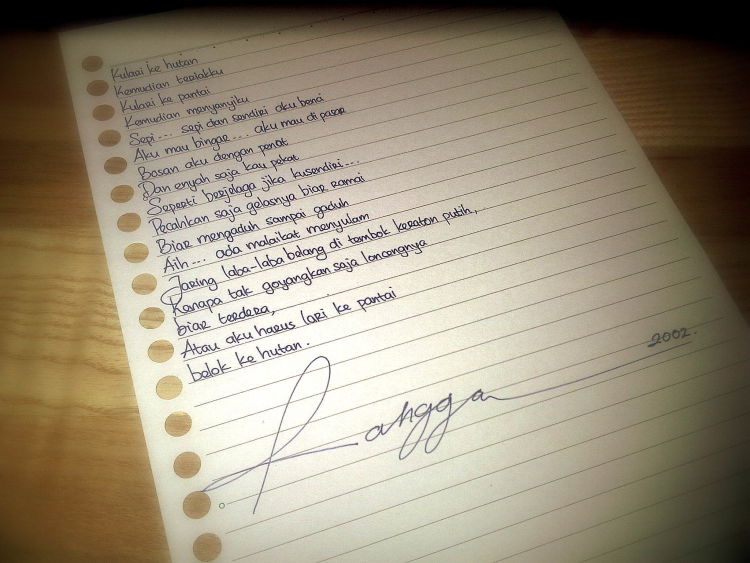 Kulari ke hutan
Kemudian teriakku
Kulari ke pantai
Kemudian menyanyiku
Sepi... sepi dan sendiri aku benci
Aku mau bingar... aku mau di pasar
Bosan aku dengan penat
Dan enyah saja kau pekat
Seperti berjelaga jika kusendiri...
Pecahkan saja gelasnya biar ramai
Biar mengaduh sampai gaduh
Aih... ada malaikat menyulam
Jaring laba-laba belang di tembok keraton putih,
Kenapa tak goyangkan saja loncengnya
biar terdera,
Atau aku harus lari ke pantai
belok ke hutan.
2002.
Rangga